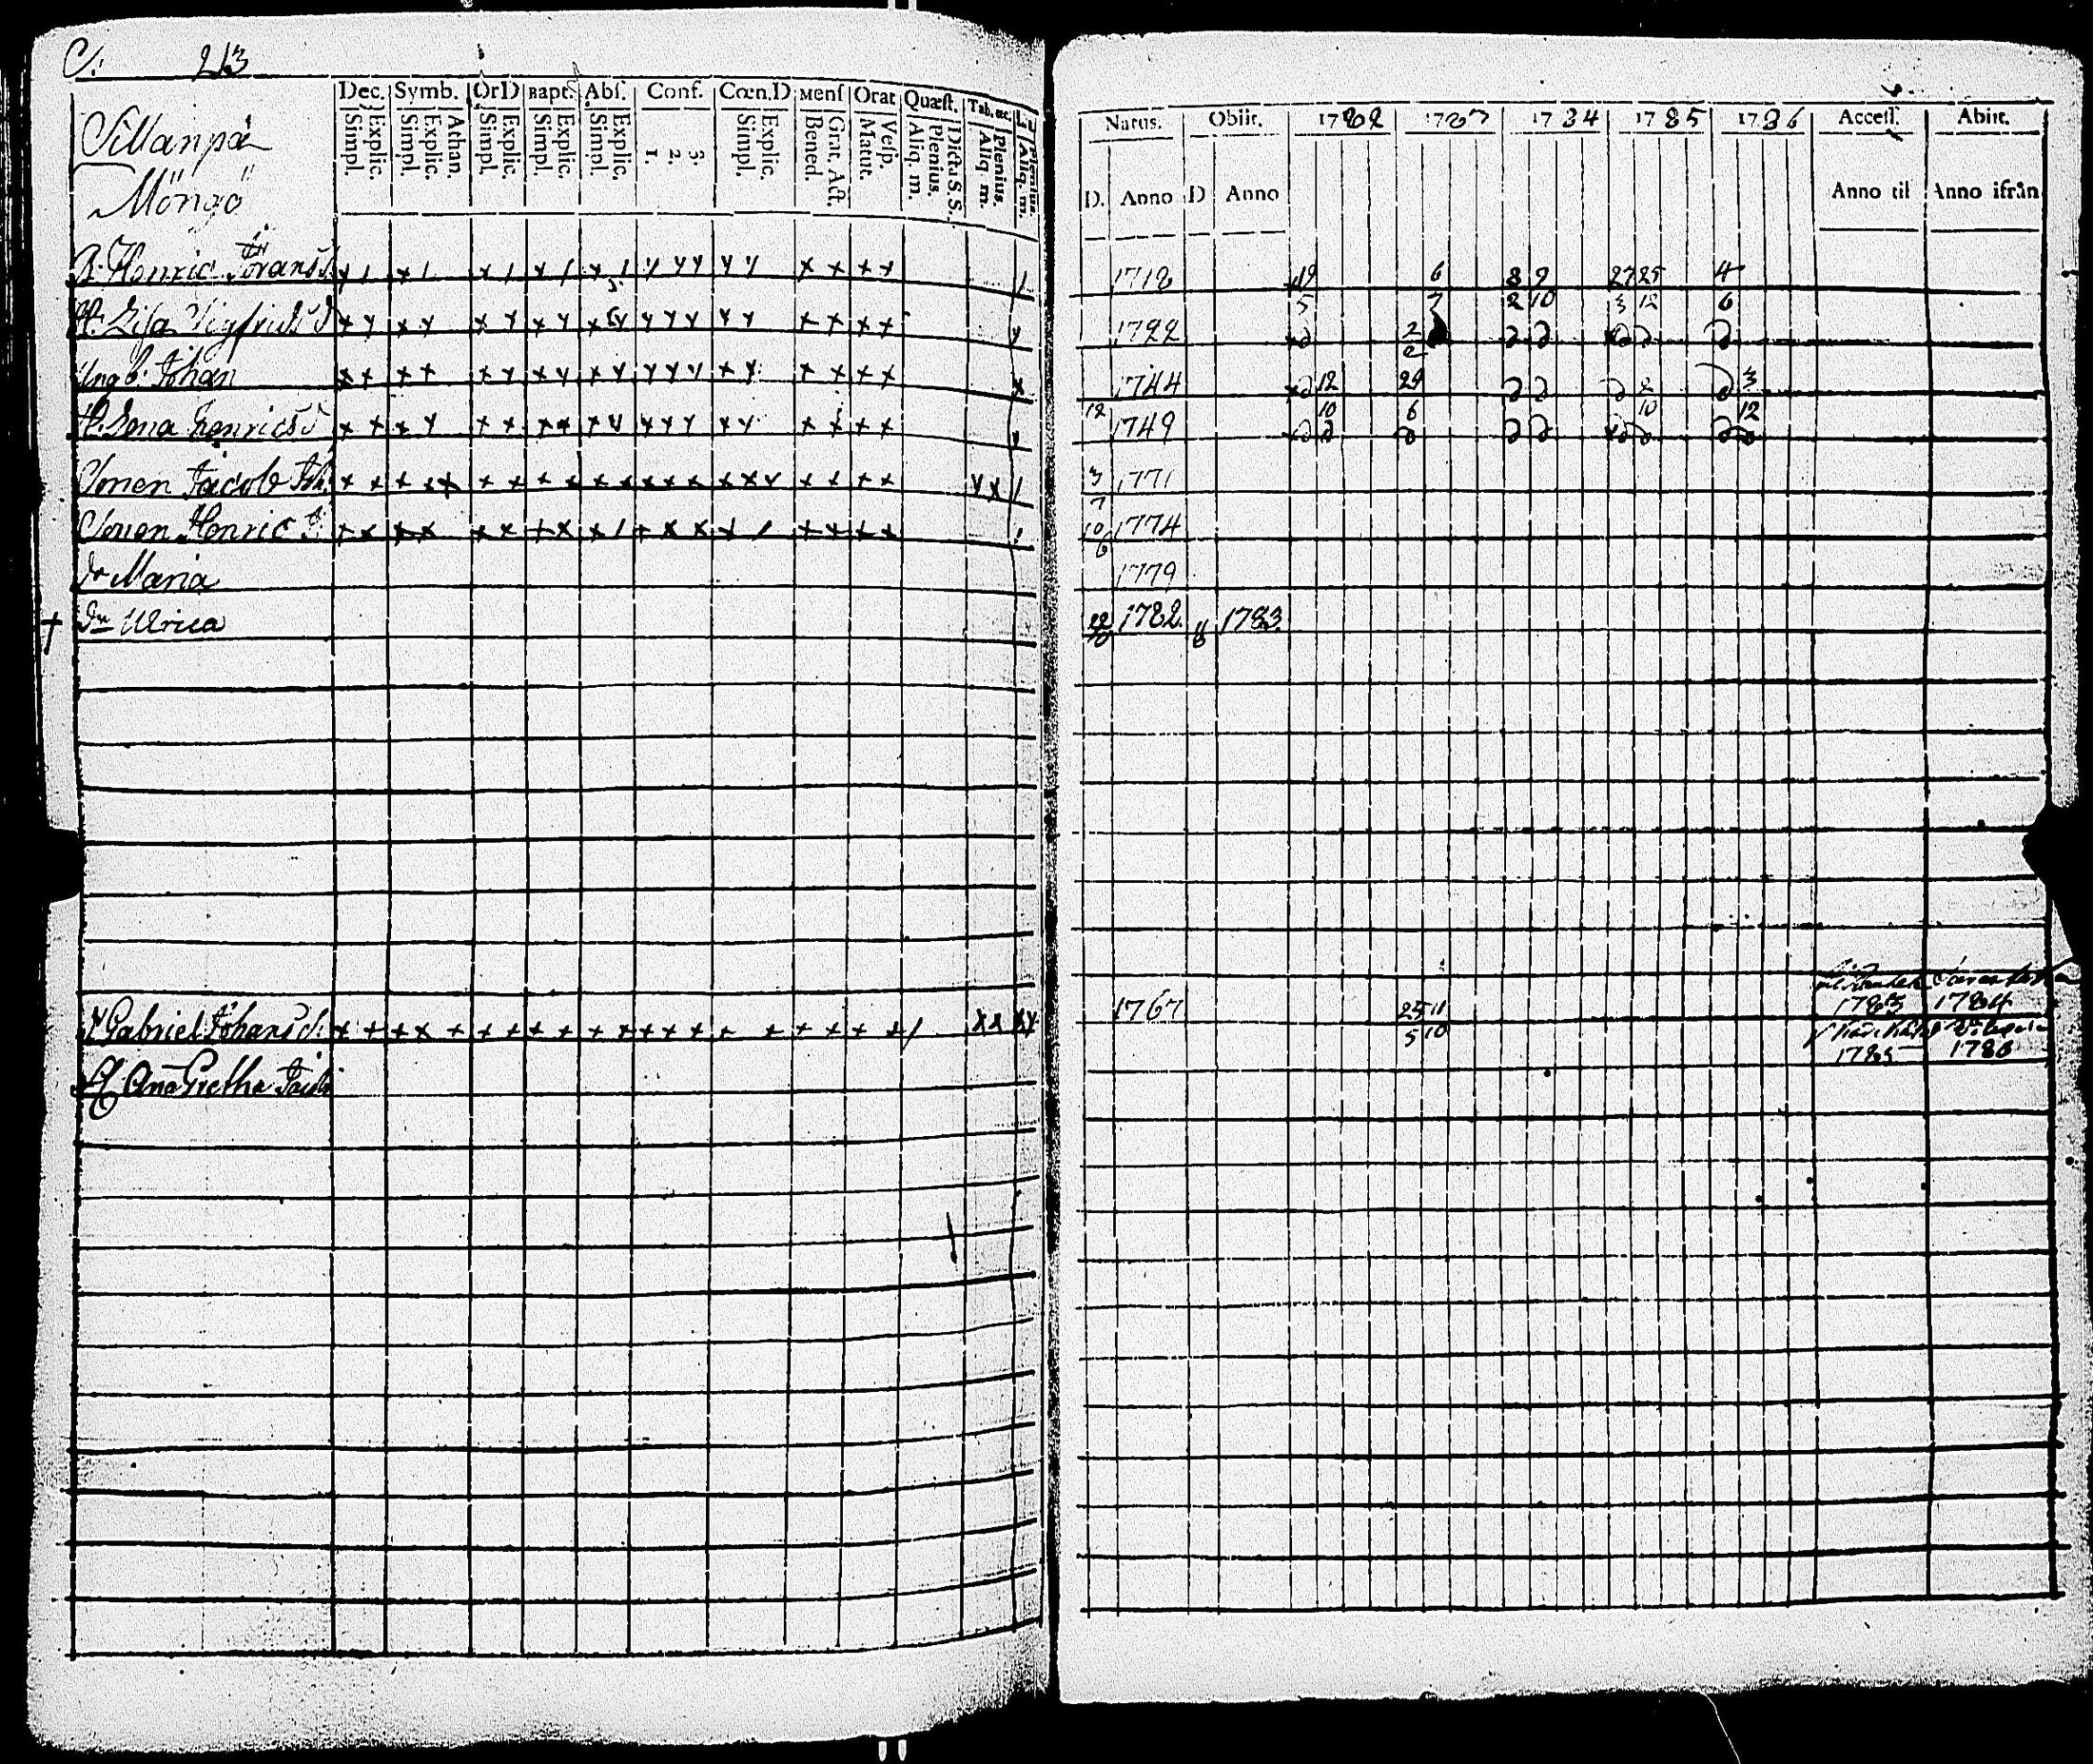 C. 213
Sillanpä
Möngö
Dec. Symb. OrD Bapt. Abs. Conf. Cœn.D Mens Orat Quæst. Tab. œc.
Explic. Simpl. Athan. Explic. Simpl. Explic. Simpl. Explic. Simpl. Explic. Simpl. 3. 2. 1. Explic. Simpl. Grat. Act. Bened. Vesp. Matut. Dicta S.S. Plenius. Aliq. m. Plenius. Aliq. m. Plenius. Aliq. m.
Natus. Obiit. 1782 1783 1784 1785 1786 Access. Abiit.
D. Anno D Anno Anno til Anno ifrån
B. Henric Jörans 1718 19 6 8 9 27 25 4
5 7 2 10 3 12 6
H. Lisa Sigfrids d 1722 2
2
Ung b. Johan 1744 12 29 8 3
10 6 10 12
H. Lena Henrics d 12 1749
Sonen Jacob Joh. 3 1771
7
Sonen Henric J. 10 1774
6
dr Maria 1779
† dr Ulrica 1782. 8 1783.
Gabriel Johans d. 1767 25 11 1783 1784
5 10
1785 1786
H Ana Gretha